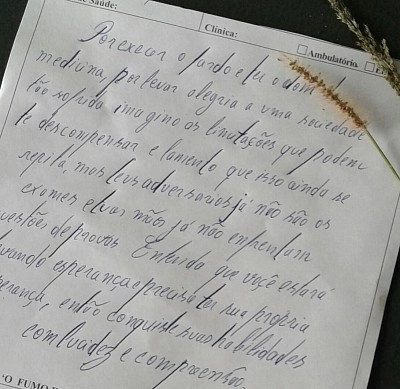 de Saúde:
Clínica:
Ambulatório
Por exercer o fardo e leu o dom da
medicina, por levar alegria a uma sociedade
tão sofrida imagino as limitações que podem
te descompensar e lamento que isso ainda se
repita, mas teus adversários já não são os
exames e tuas mãos já não enfrentam
questões de provas. Entenda que você estará
levando esperança e precisa ter sua própria
esperança, então conquiste suas habilidades
com lucidez e compreensão.
O FUMO